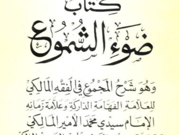 كتاب
ضوء الشموع
وهو شرح المجموع في الفقه المالكي
للعلامة الفهامة الدراكة وعلامة زمانه
الإمام سيدي محمد الأمير المالكي